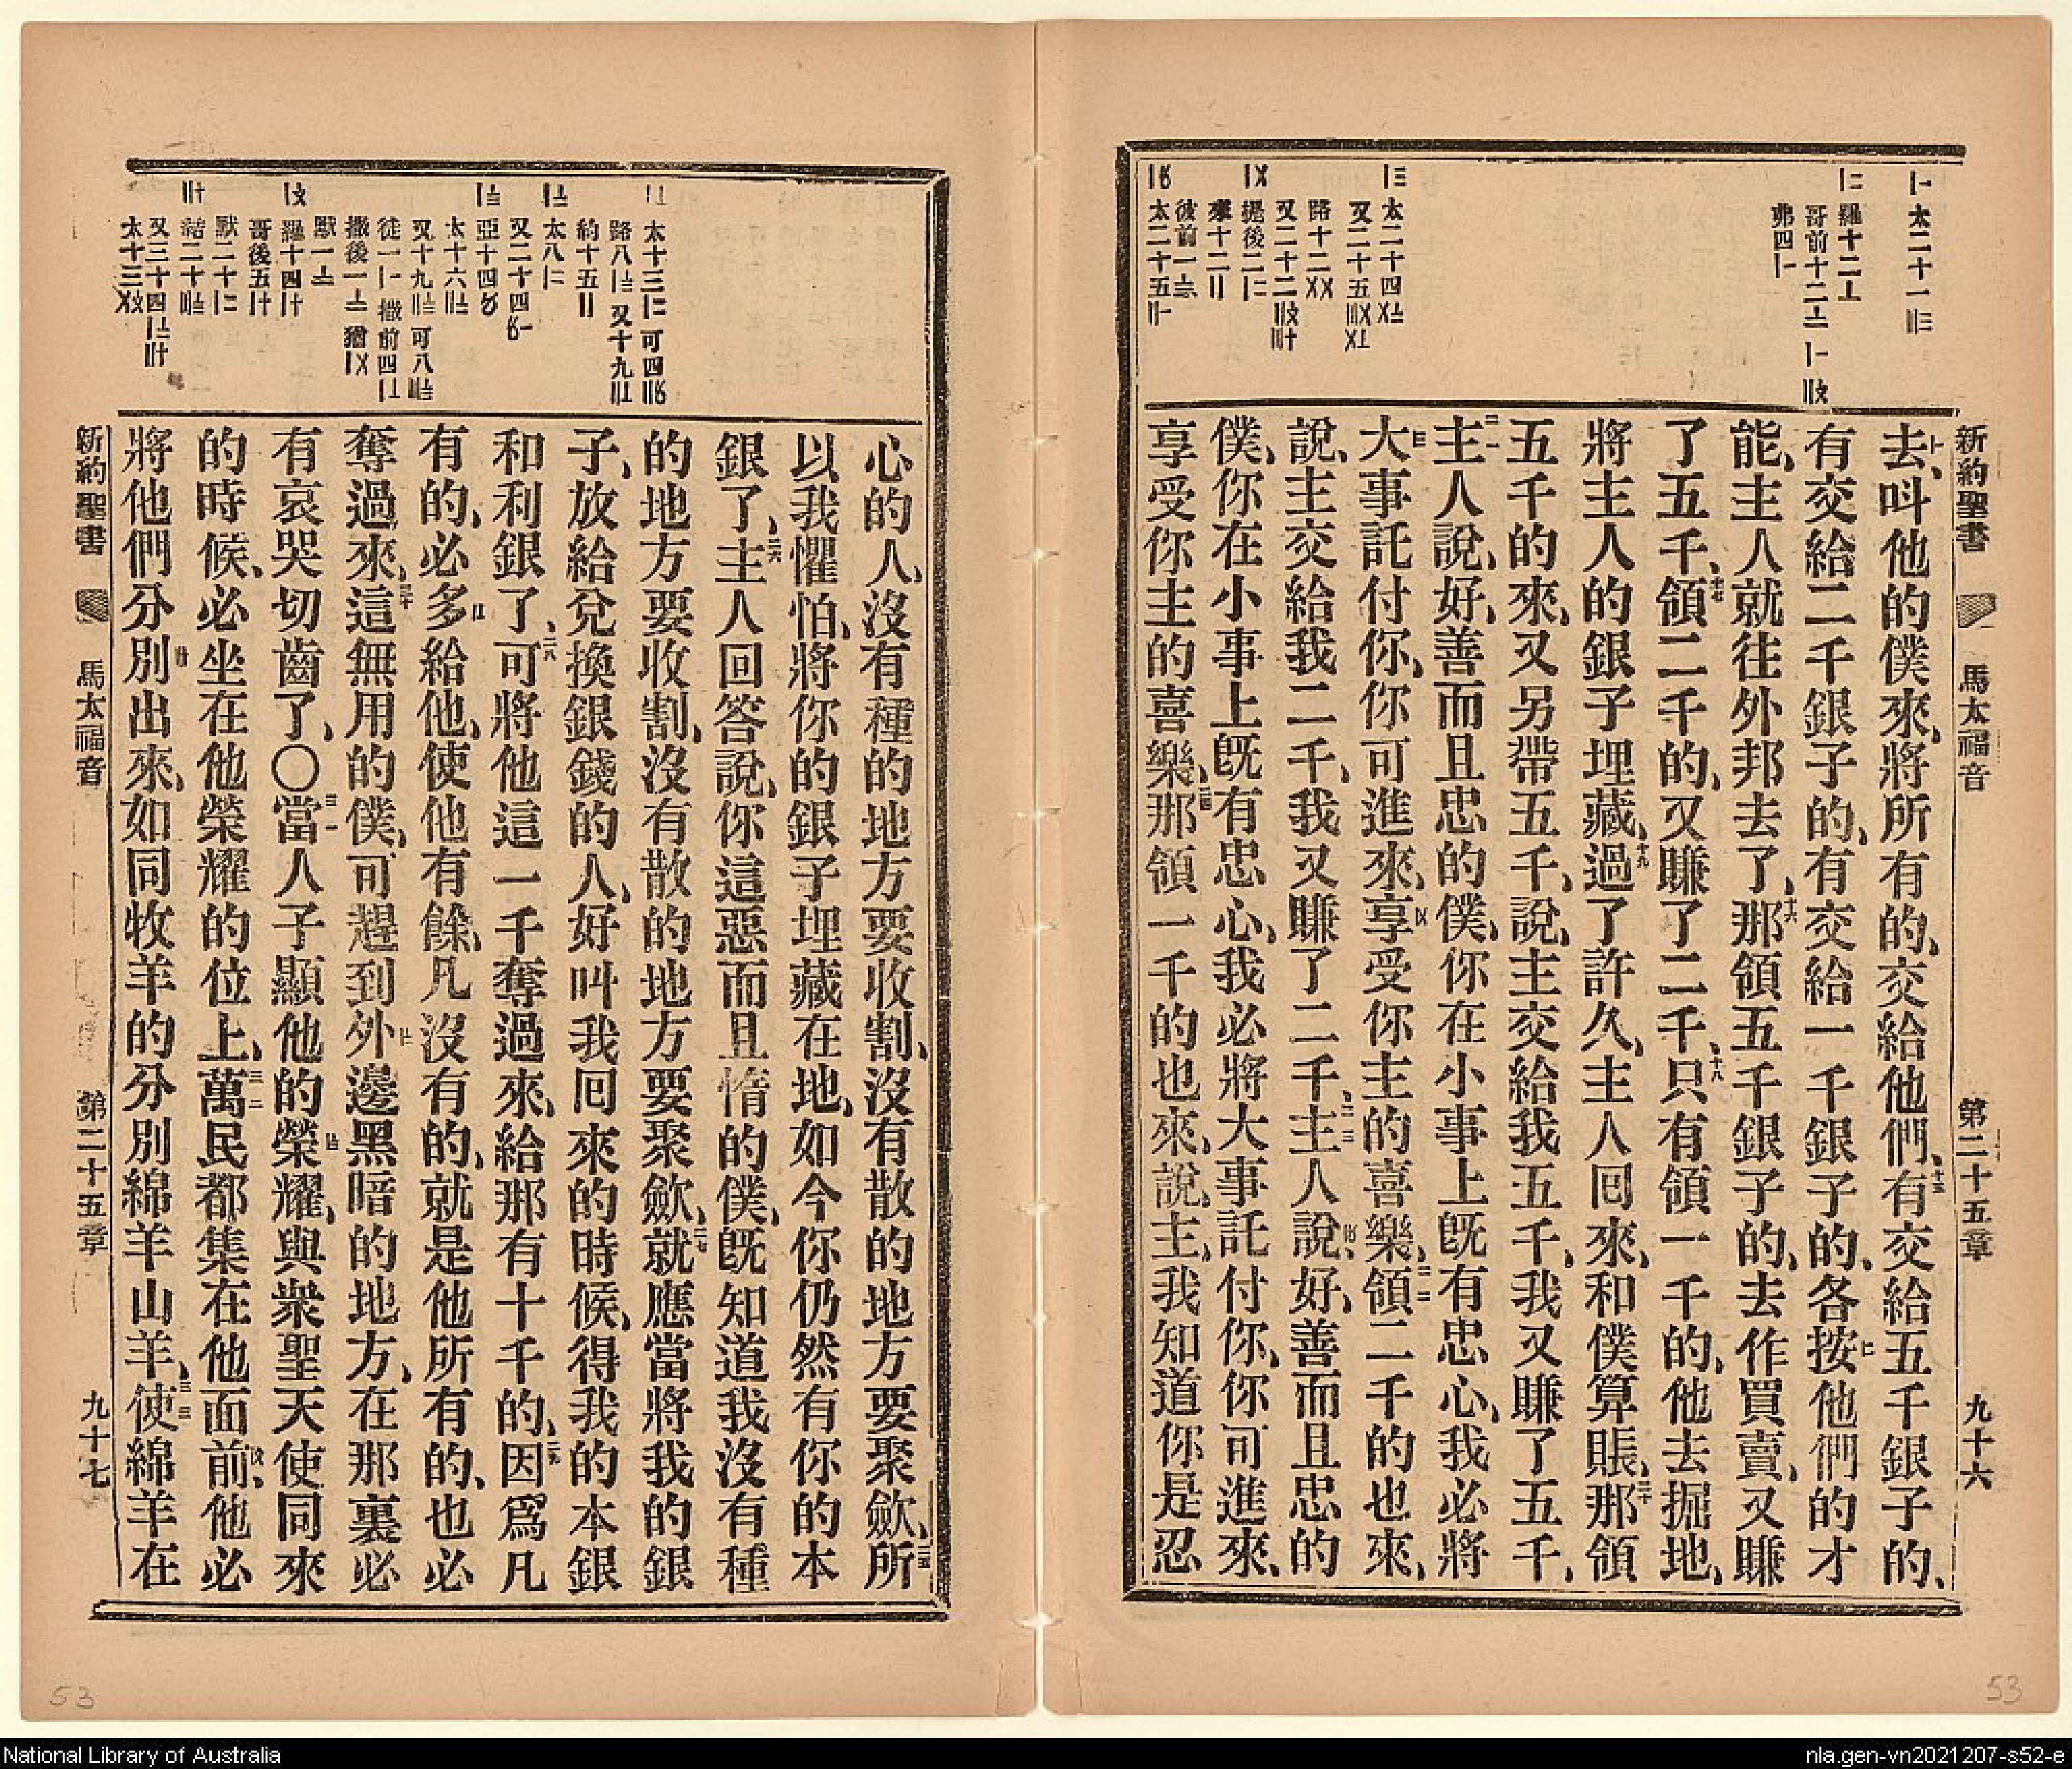 新約聖書 馬太福音 第二十五章 九十六
去、叫他的僕來、將所有的、交給他們、有交給五千銀子的、
有交給二千銀子的、有交給一千銀子的、各按他們的才
能、主人就往外邦去了、那領五千銀子的、去作買賣、又賺
了五千、領二千的、又賺了二千、只有領一千的、他去掘地、
將主人的銀子埋藏、過了許久、主人回來、和僕算賬、那領
五千的來、又另帶五千、說、主交給我五千、我又賺了五千、
主人說、好、善而且忠的僕、你在小事上旣有忠心、我必將
大事託付你、你可進來、享受你主的喜樂、領二千的也來、
說、主交給我二千、我又賺了二千、主人說、好、善而且忠的
僕、你在小事上旣有忠心、我必將大事託付你、你可進來、
享受你主的喜樂、那領一千的也來、說、主、我知道你是忍
心的人、沒有種的地方要收割、沒有散的地方要聚歛、所
以我懼怕、將你的銀子埋藏在地、如今你仍然有你的本
銀了、主人回答說、你這惡而且惰的僕、旣知道我沒有種
的地方要收割、沒有散的地方要聚歛、就應當將我的銀
子、放給兌換銀錢的人、好叫我回來的時候、得我的本銀
和利銀了、可將他這一千奪過來、給那有十千的、因爲凡
有的、必多給他、使他有餘、凡沒有的、就是他所有的、也必
奪過來、這無用的僕、可趕到外邊黑暗的地方、在那裏必
有哀哭切齒了、○當人子顯他的榮耀、與衆聖天使同來
的時候、必坐在他榮耀的位上、萬民都集在他面前、他必
將他們分別出來、如同牧羊的分別綿羊山羊、使綿羊在
新約聖書 馬太福音 第二十五章 九十七
53
53
National Library of Australia
nla.gen-vn2021207-s52-e